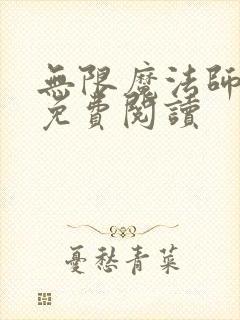 無限魔法師
免費閱讀
憂愁青菜